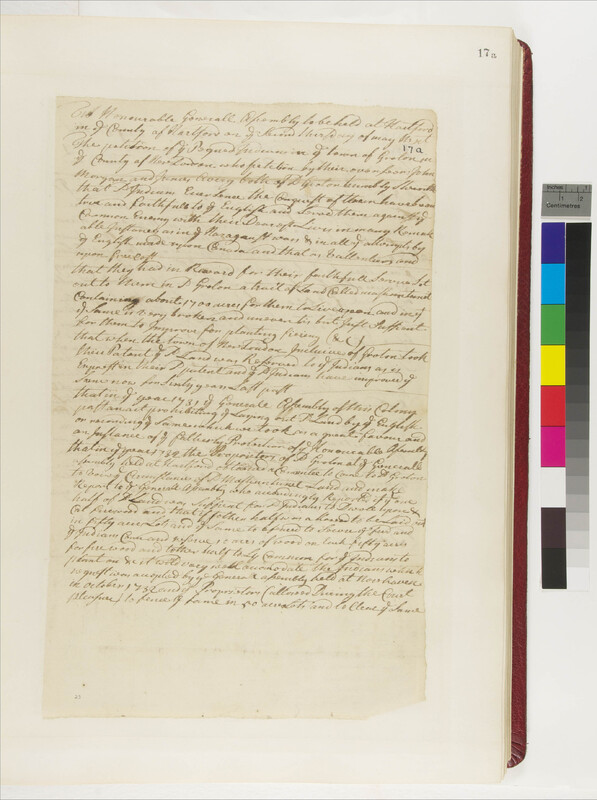 17a
Honourable Generall Assembly to be held at Hartford
in ye County of Hartford on ye Second Thursday of may Next
The petition of ye Pequod Indians in ye town of Groton in
17a
ye County of New London who petition by their overseers John
Morgan and James Avery both of sd Groton humbly Sheweth
that sd Indians Ever Since the Conquest of them have been
love and faithfull to ye English and Served them against ye
Common Enemy with their Dearest Lives in many Remark
able Instances as in ye Naraganset warr & in all ye attempts by
ye English made upon Canada and that as Vallenteers and
upon free Cost
that they had in Reward for their faithfull Service Set
out to them in sd Groton a tract of Land Called
Containing about 1700 acres for them to Live upon and
ye Same is Very broken and uneven & is but Just Sufficient
for them to Improve for planting fireing &c
that when the town of New London Inclusive of Groton took
their Patent ye sd Land was Reserved to ye Indians as is
Exprest in their sd patent and ye sd Indians have improved ye
Same now for Sixty years Last past
that in ye year 1731 ye Generall Assembly of this Colony
past an act prohibiting ye Laying out sd Land by ye English
or recording ye Same which we took as a great favour and
an Instance of ye fatherly Protection of ye Honourable Assembly
that in ye year 1732 the Proprietors of sd Groton at ye Generall
Assembly held at Hartford obtained a Comittee to Come to sd Groton
to View ye Circumstances of sd Land and make
Report to ye Generall Assembly who accordingly Reported yt one
half of sd Land was Sufficient for sd Indians to Dwell upon &
Cut firewood and that ye other half
in fifty acre Lots and ye Same to be
ye Indian Corn and reserve 10 acres of wood on Each fifty acres
for fire wood and tother half to ly Common for ye Indians to
plant on &c it would very well accomodate the Indians which
report was accepted by ye Generall assembly held at New haven
in October 1732 and ye Proprietors allowed During the Court
pleasure to fence ye Same in 50 acre Lots and to Clear ye Same